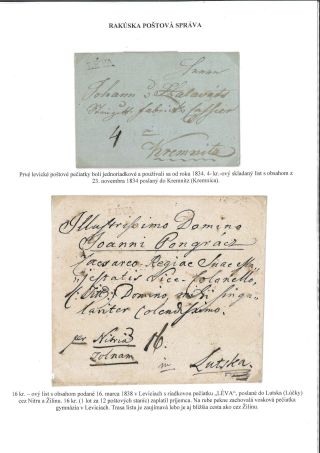 RAKÚSKA POŠTOVÁ SPRÁVA
LÉVA
Johann
4
Kremnitz
Prvé levické poštové pečiatky boli jednoriadkové a používali sa od roku 1834. 4- kr.-ový skladaný list s obsahom z
23. novembra 1834 poslaný do Kremnitz (Kremnica).
Illustrissimo Domino
Joanni Pongracz
Caesareo Regiae Suae
Vice-Colonello,
Domino, mihi singu
lariter Colendissimo.
per Nitria
Zolnam
16.
in Lutska
16 kr. – ový list s obsahom podané 16. marca 1838 v Leviciach s riadkovou pečiatkou „LÉVA", poslané do Lutska (Lúčky)
cez Nitru a Žilinu. 16 kr. (1 lot za 12 poštových staníc) zaplatil príjemca. Na rube pekne zachovalá vosková pečiatka
gymnázia v Leviciach. Trasa listu je zaujímavá lebo je aj bližšia cesta ako cez Žilinu.